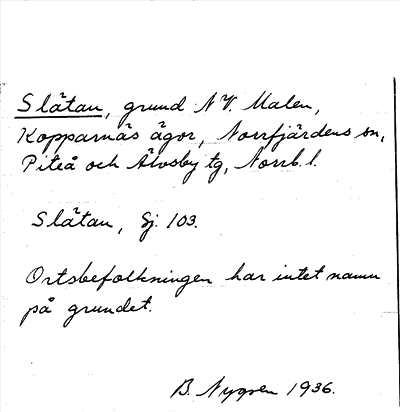 Slätan, grund N V. Malen,
Kopparnäs ägor, Norrfjärdens sn,
Piteå och Älvsby tg, Norrb. l.
Slätan, Sj. 103.
Ortsbefolkningen har intet namn
på grundet.
B. Nygren 1936.